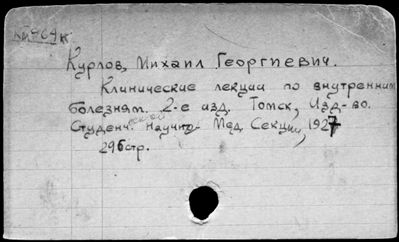 Курлов, Михаил Георгиевич.
Клинические лекции по внутренним
болезням. 2-е изд. Томск, Изд-во.
Студенч. Научно-Мед. Секции, 1927
296 стр.